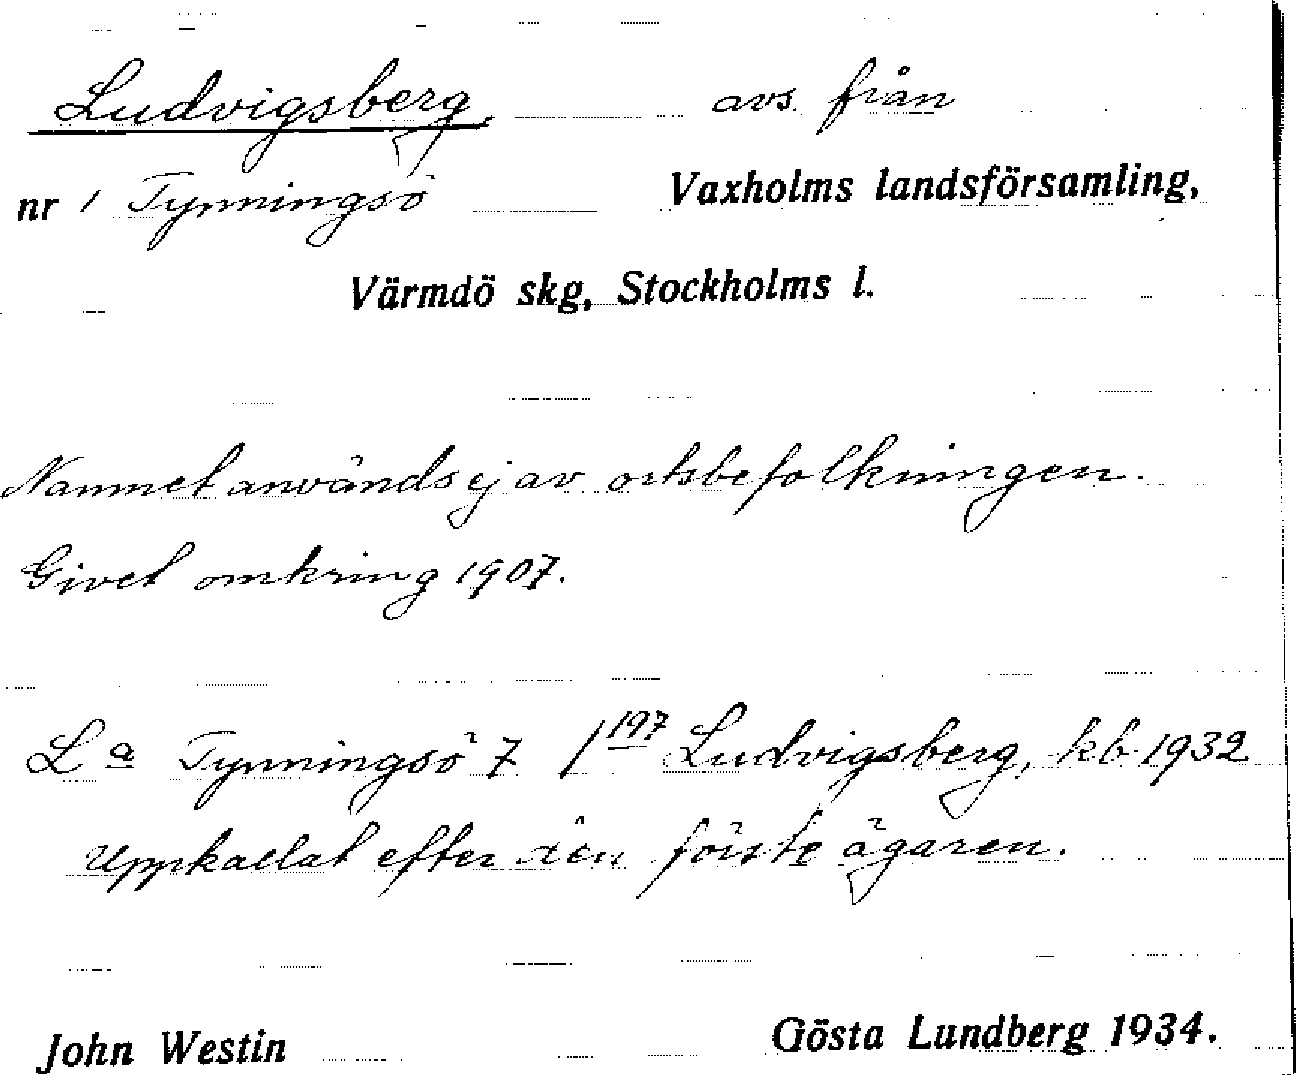 Ludvigsberg, avs. från
nr 1 Tynningsö Vaxholms landsförsamling,
Värmdö skg, Stockholms l.
Namnet används ej av ortsbefolkningen.
Givet omkring 1907.
L a Tynningsö 7 1 197 Ludvigsberg, kb 1932
Uppkallat efter den förste ägaren.
John Westin Gösta Lundberg 1934.